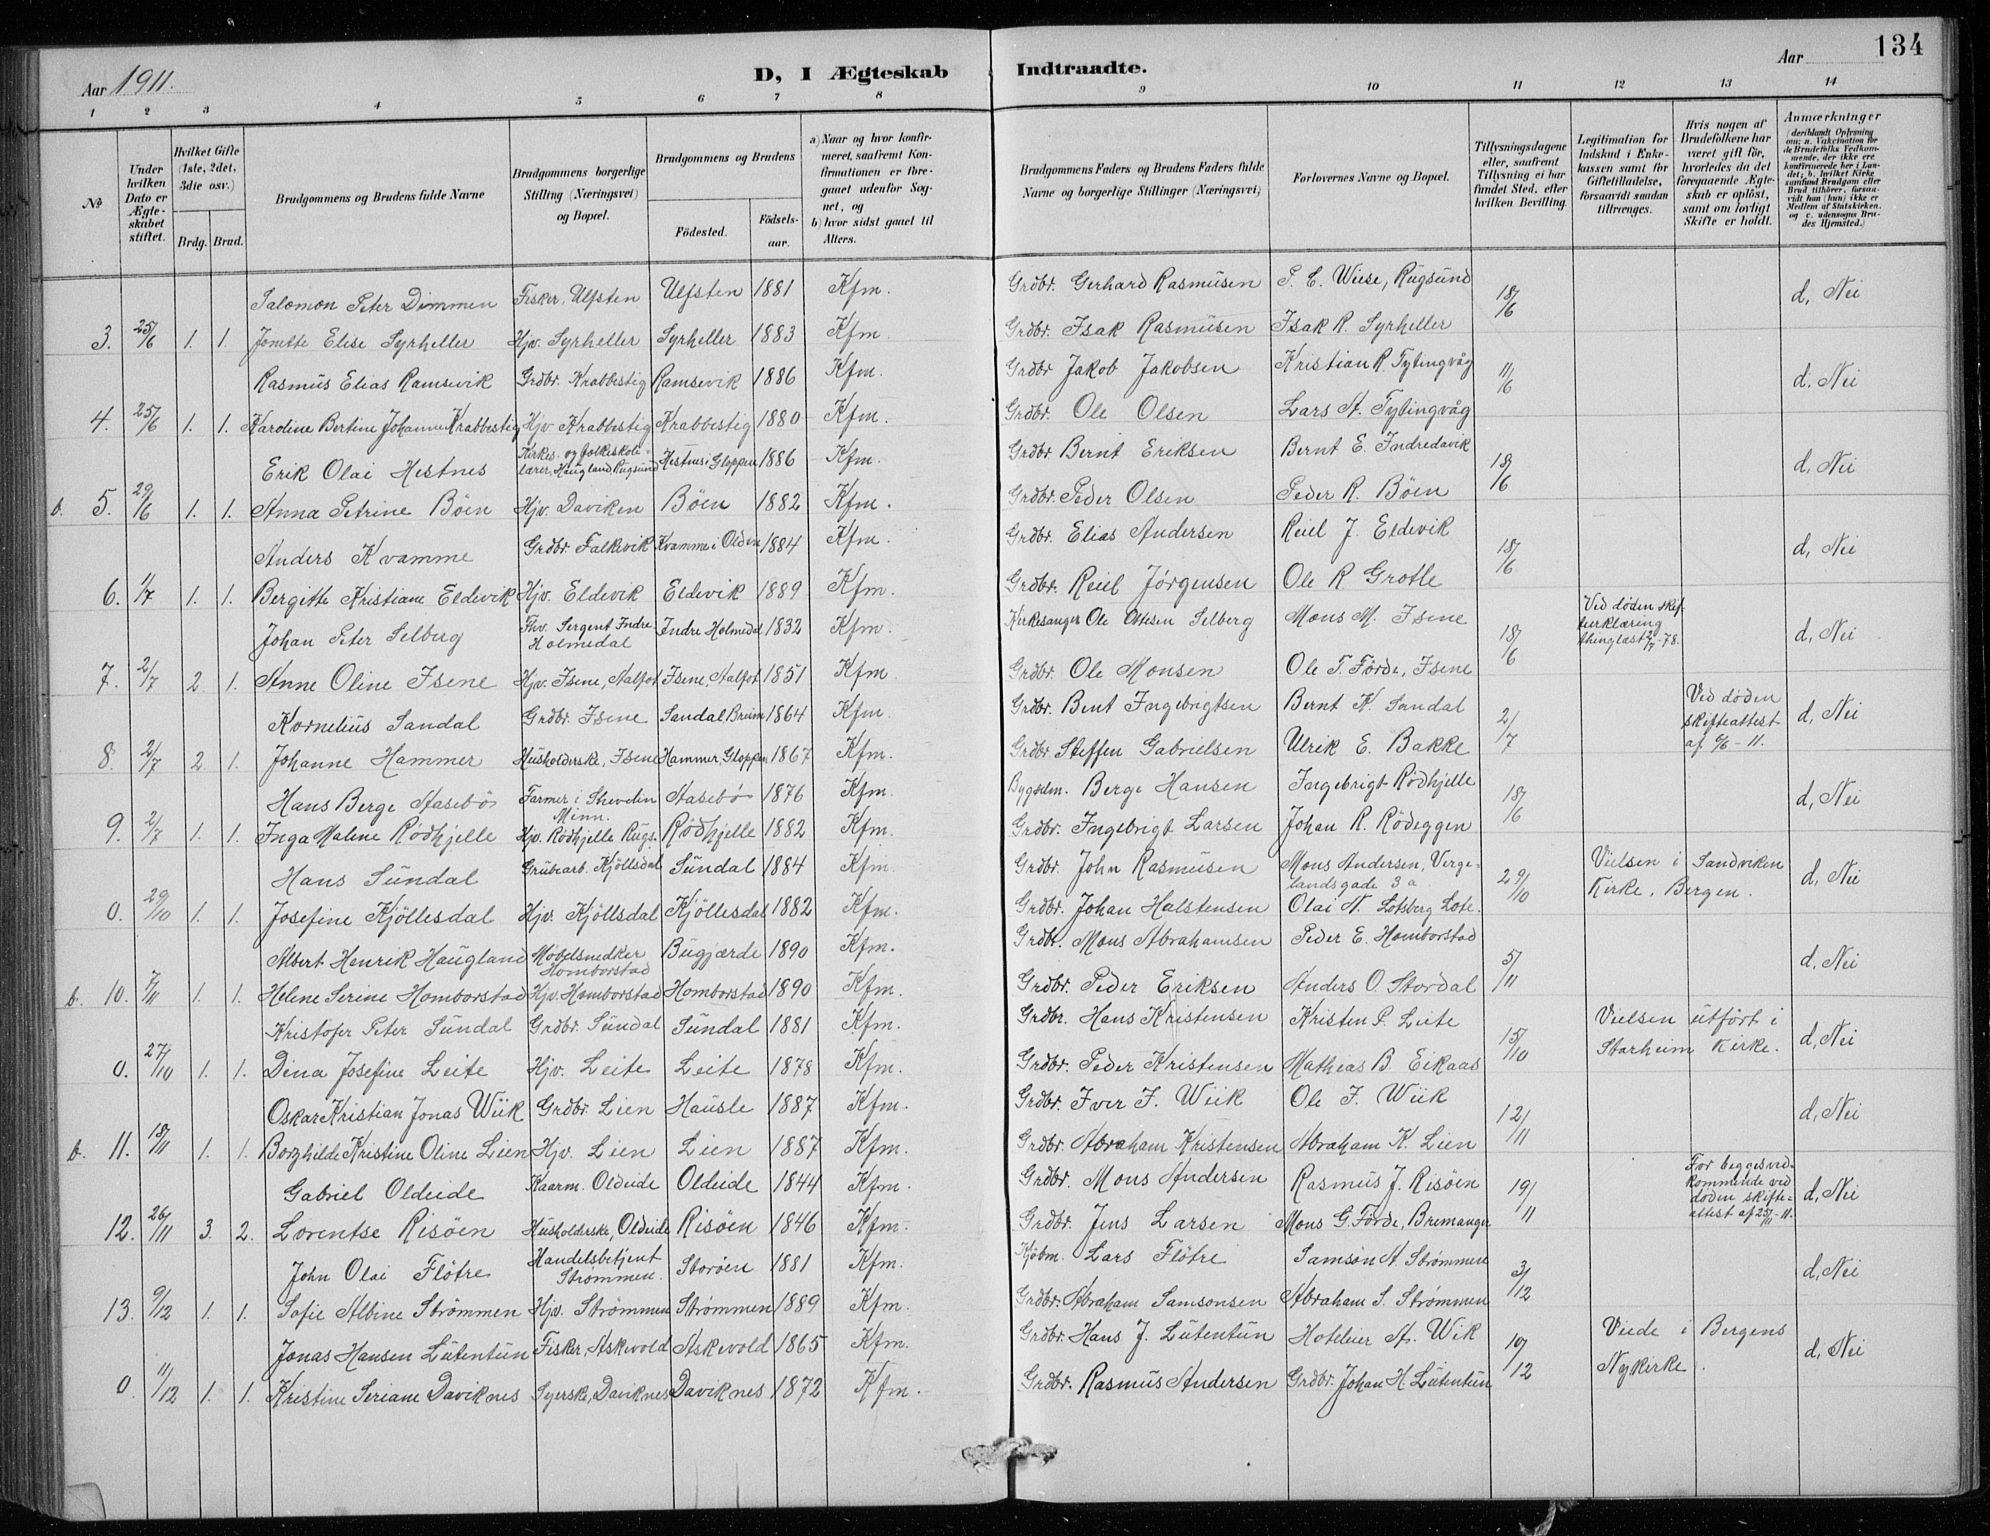 134
Aar 1911.
D, I Ægteskab Indtraadte.
Aar
1 2 3 4 5 6 7 8 9 10 11 12 13 14
No
Under hvilken Dato er Ægteskabet stiftet.
Hvilket Gifte (1ste, 2det, 3die osv.)
Brdg. Brud.
Brudgommens og Brudens fulde Navne
Brudgommens borgerlige Stilling (Næringsvei) og Bopæl.
Brudgommens og Brudens
Fødested. Fødselsaar.
a) Naar og hvor konfirmeret, saafremt Konfirmationen er foregaaet udenfor Sognet, og
b) hvor sidst gaaet til Alters.
Brudgommens Faders og Brudens Faders fulde Navne og borgerlige Stillinger (Næringsvei)
Forlovernes Navne og Bopæl.
Tillysningsdagene eller, saafremt Tillysning ei har fundet Sted, efter hvilken Bevilling.
Legitimation for Indskud i Enkekassen samt for Giftetilladelse, forsaavidt saadan tiltrænges.
Hvis nogen af Brudefolkene har været gift før, hvorledes da det foregaaende Ægteskab er opløst, samt om lovligt Skifte er holdt.
Anmærkninger
Salomon Peter Dimmen Fisker, Ulfsten Ulfsten 1881 Kfm. Grdbr. Gerhard Rasmusen P. E. Wiese, Rugsund 18/6 d, Nei
3. 25/6 1. 1. Jonette Elise Syrheller Hjv. Syrheller Syrheller 1883 Kfm. Grdbr. Isak Rasmusen Isak R. Syrheller
Rasmus Elias Ramsevik Grdbr. Krabbestig Ramsevik 1886 Kfm. Grdbr Jakob Jakobsen Kristian R. Tytingvåg 11/6 d. Nei
4. 25/6 1. 1. Karoline Bertine Johanne Krabbestig Hjv Krabbestig Krabbestig 1880 Kfm. Grdbr. Ole Olsen Lars A. Tytingvåg
Erik Olai Hestnes Kirkes. og folkeskolelærer, Haugland Rugsund Hestnes i Gloppen 1886 Kfm. Grdbr Bernt Eriksen Bernt E. Indredavik 18/6 d, Nei
b. 5. 29/6 1. 1. Anna Petrine Böen Hjv. Daviken Böen 1882 Kfm. Grdbr. Peder Olsen Peder R. Böen
Anders Kvamme Grdbr. Falkevik Kvamme i Olden 1884 Kfm. Grdbr. Elias Andersen Reiel J. Eldevik 18/6 d, Nei
6. 1/7 1. 1. Bergitte Kristiane Eldevik Hjv. Eldevik Eldevik 1889 Kfm. Grdbr. Reiel Jørgensen Ole R. Grotle
Johan Peter Selberg Fhv. Sergent Indre Holmedal Indre Holmedal 1832 Kfm. Kirkesanger Ole Ottesen Selberg Mons M. Isene 18/6 Ved døden skifteerklæring thinglæst 2/7-78. d, Nei
7. 2/7 2 1. Anne Oline Isene Hjv. Isene, Aalfot Isene, Aalfot 1851 Kfm. Grdbr. Ole Monsen Ole T. Förde, Isene
Kornelius Sandal Grdbr. Isene Sandal Breim 1864 Kfm. Grdbr. Bent Ingebrigtsen Bernt K. Sandal 2/7 Ved døden skifteattest af 9/6-11. d, Nei
8. 2/7 2 1. Johanne Hammer Husholderske, Isene Hammer, Gloppen 1867 Kfm. Grdbr Steffen Gabrielsen Ulrik E. Bakke
Hans Berge Aasebö Farmer i Shevelin Minn. Aasebö 1876 Kfm. Bygselm. Berge Hansen Ingebrigt Rödhjelle 18/6 d, Nei
9. 2/7 1. 1. Inga Maline Rödhjelle Hjv. Rödhjelle Rugs. Rödhjelle 1882 Kfm. Grdbr. Ingebrigt Larsen Johan R. Rödeggen
Hans Sundal Grubearb. Kjöllsdal Sundal 1884 Kfm. Grdbr. John Rasmusen Mons Andersen, Vergelandsgade 3a 29/10 Vielsen i Sandviken Kirke, Bergen. d, Nei
0. 29/10 1. 1. Josefine Kjöllesdal Hjv. Kjöllsdal Kjöllesdal 1882 Kfm. Grdbr. Johan Halstensen Olai N. Lotsberg Lote.
Albert Henrik Haugland Møbelsnedker Homborstad Bugjærde 1890 Kfm. Grdbr. Mons Abrahamsen Peder E. Homborstad 5/11 d, Nei
b. 10. 7/11 1. 1. Helene Serine Homborstad Hjv. Homborstad Homborstad 1890 Kfm. Grdbr. Peder Eriksen Anders O. Stordal
Kristofer Peter Sundal Grdbr. Sundal Sundal 1881 Kfm. Grdbr. Hans Kristensen Kristen P. Leite 15/10 Vielsen utført i Starheim Kirke. d, Nei
0. 27/10 1. 1. Dina Josefine Leite Hjv. Leite Leite 1878 Kfm. Grdbr. Peder Kristensen Mathias B. Eikaas
Oskar Kristian Jonas Wiik Grdbr. Lien Hausle 1887 Kfm. Grdbr. Iver J. Wiik Ole J. Wiik 12/11 d, Nei
b. 11. 18/11 1. 1. Borghilde Kristine Oline Lien Hjv. Lien Lien 1887 Kfm. Grdbr. Abraham Kristensen Abraham K. Lien
Gabriel Oldeide Kaarm. Oldeide Oldeide 1844 Kfm. Grdbr. Mons Andersen Rasmus J. Risöen 19/11 For begges vedkommende ved døden skifteattest af 25/11-11. d, Nei
12. 26/11 3. 2. Lorentse Risöen Husholderske, Oldeide Risöen 1846 Kfm. Grdbr. Jens Larsen Mons G. Förde, Bremanger
John Olai Flötre Handelsbetjent Strømmen. Storöen 1881 Kfm. Kjøbm. Lars Flötre Samson A. Strømmen 3/12 d, Nei
13. 9/12 1. 1. Sofie Albine Strømmen Hjv. Strømmen Strømmen 1889 Kfm. Grdbr. Abraham Samsonsen Abraham S. Strømmen
Jonas Hansen Lutentun Fisker, Askevold Askevold 1865 Kfm. Grdbr. Hans J. Lutentun Hoteleier A. Wik 10/12 Viede i Bergens Nykirke. d, Nei
0. 11/12 1. 1. Kristine Seriane Daviknes Syerske, Daviknes Daviknes 1872 Kfm. Grdbr. Rasmus Andersen Grdbr. Johan H. Lutentun